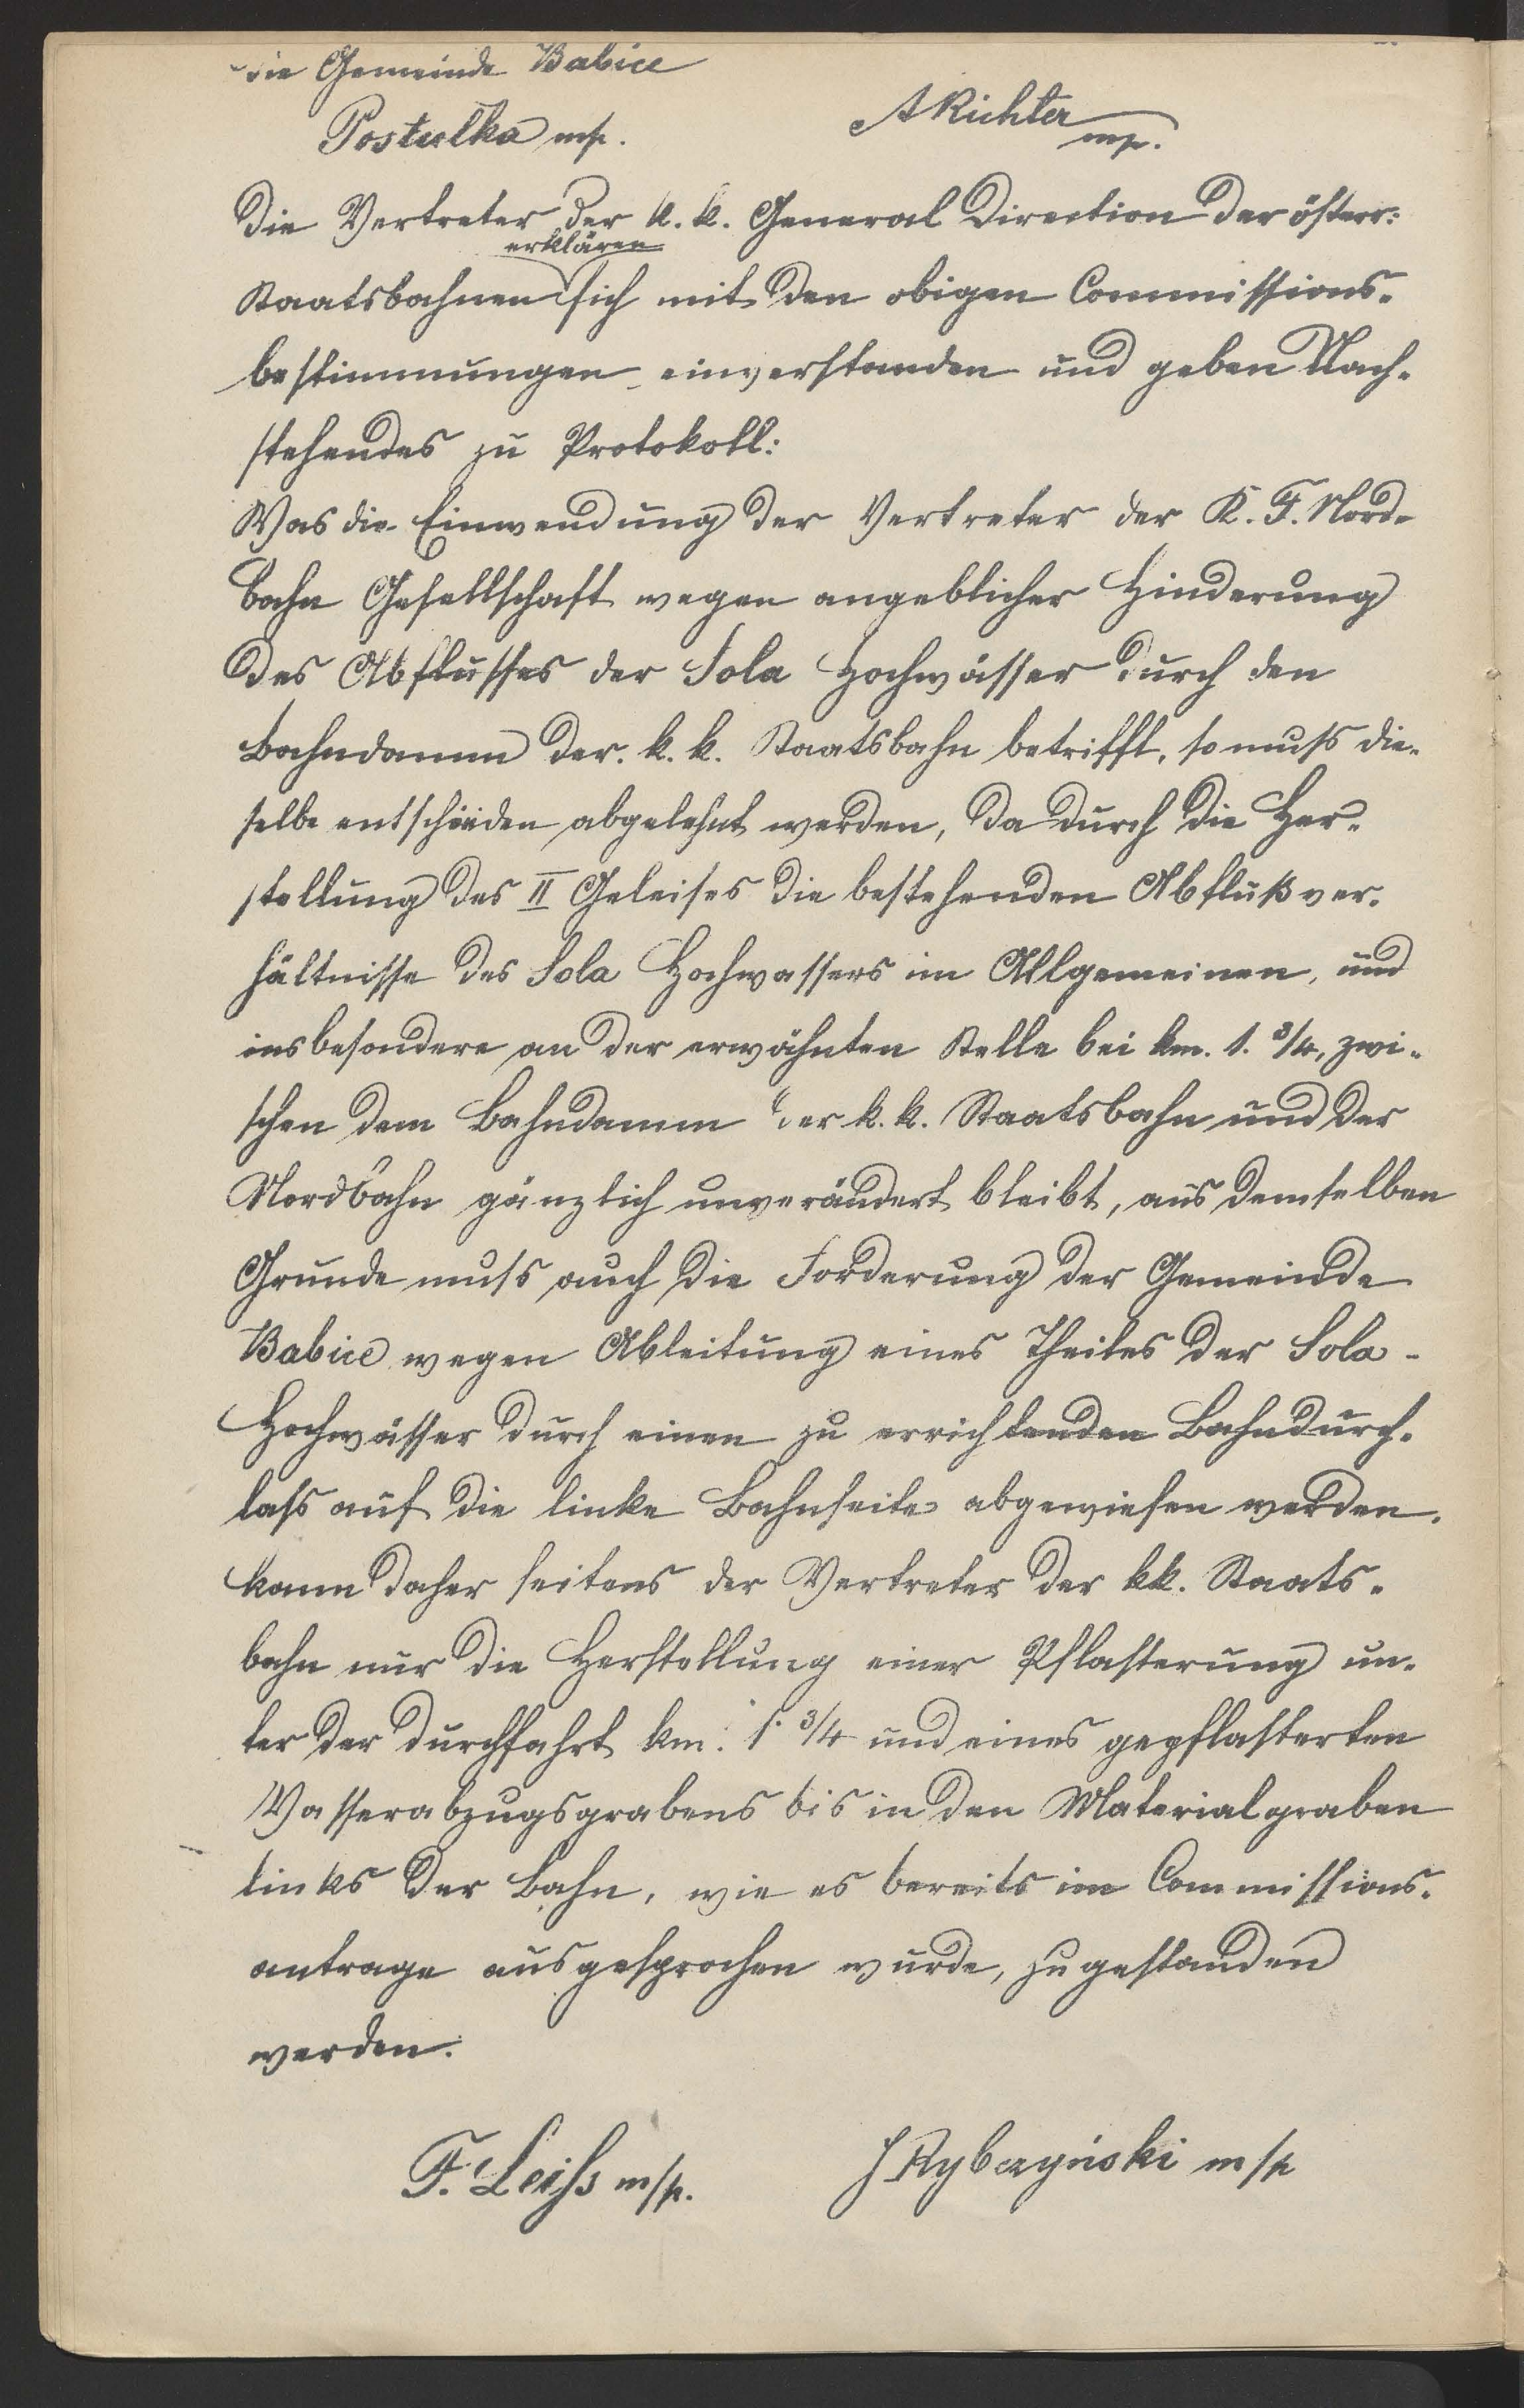 die Gemeinde Babice
Postulka mp. ARichter mp.
Die Vertreter der k. k. General Direction der österr:
erklären
Staatsbahnen sich mit den obigen Commissions-
bestimmungen einverstanden und geben Nach-
stehendes zu Protokoll:
Was die Einwendung der Vertreter der K. F. Nord-
bahn Gesellschaft wegen angeblicher Hinderung
des Abflusses der Sola Hochwässer durch den
Bahndamm der k. k. Staatsbahn betrifft, so muss die-
selbe entschieden abgelehnt werden, da durch die Her-
stellung des II Geleises die bestehenden Abflußver-
hältnisse des Sola Hochwassers im Allgemeinen, und
insbesondere an der erwähnten Stelle bei km. 1. 3/4, zwi-
schen dem Bahndamm der k. k. Staatsbahn und der
Nordbahn gänzlich unverändert bleibt, aus demselben
Grunde muss auch die Forderung der Gemeinde
Babice wegen Ableitung eines Theiles der Sola-
Hochwässer durch einen zu errichtenden Bahndurch-
lass auf die linke Bahnseite abgewiesen werden.
kann daher seitens der Vertreter der kk. Staats-
bahn nur die Herstellung einer Pflasterung un-
ter der Durchfahrt km. 1. 3/4 und eines gepflasterten
Wasserabzugsgrabens bis in den Materialgraben
links der Bahn, wie es bereits im Commissions-
antrage ausgesprochen wurde, zugestanden
werden.
F. Leiss m/p. J Rybczyński m/p